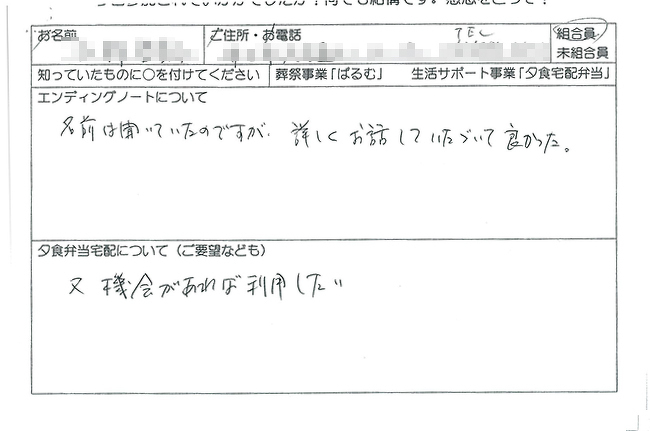 お名前
ご住所・お電話 TEL
組合員
未組合員
知っていたものに○を付けてください 葬祭事業「ぱるむ」 生活サポート事業「夕食宅配弁当」
エンディングノートについて
名前は聞いていたのですが、詳しくお話していただいて良かった。
夕食弁当宅配について（ご要望なども）
又機会があれば利用したい